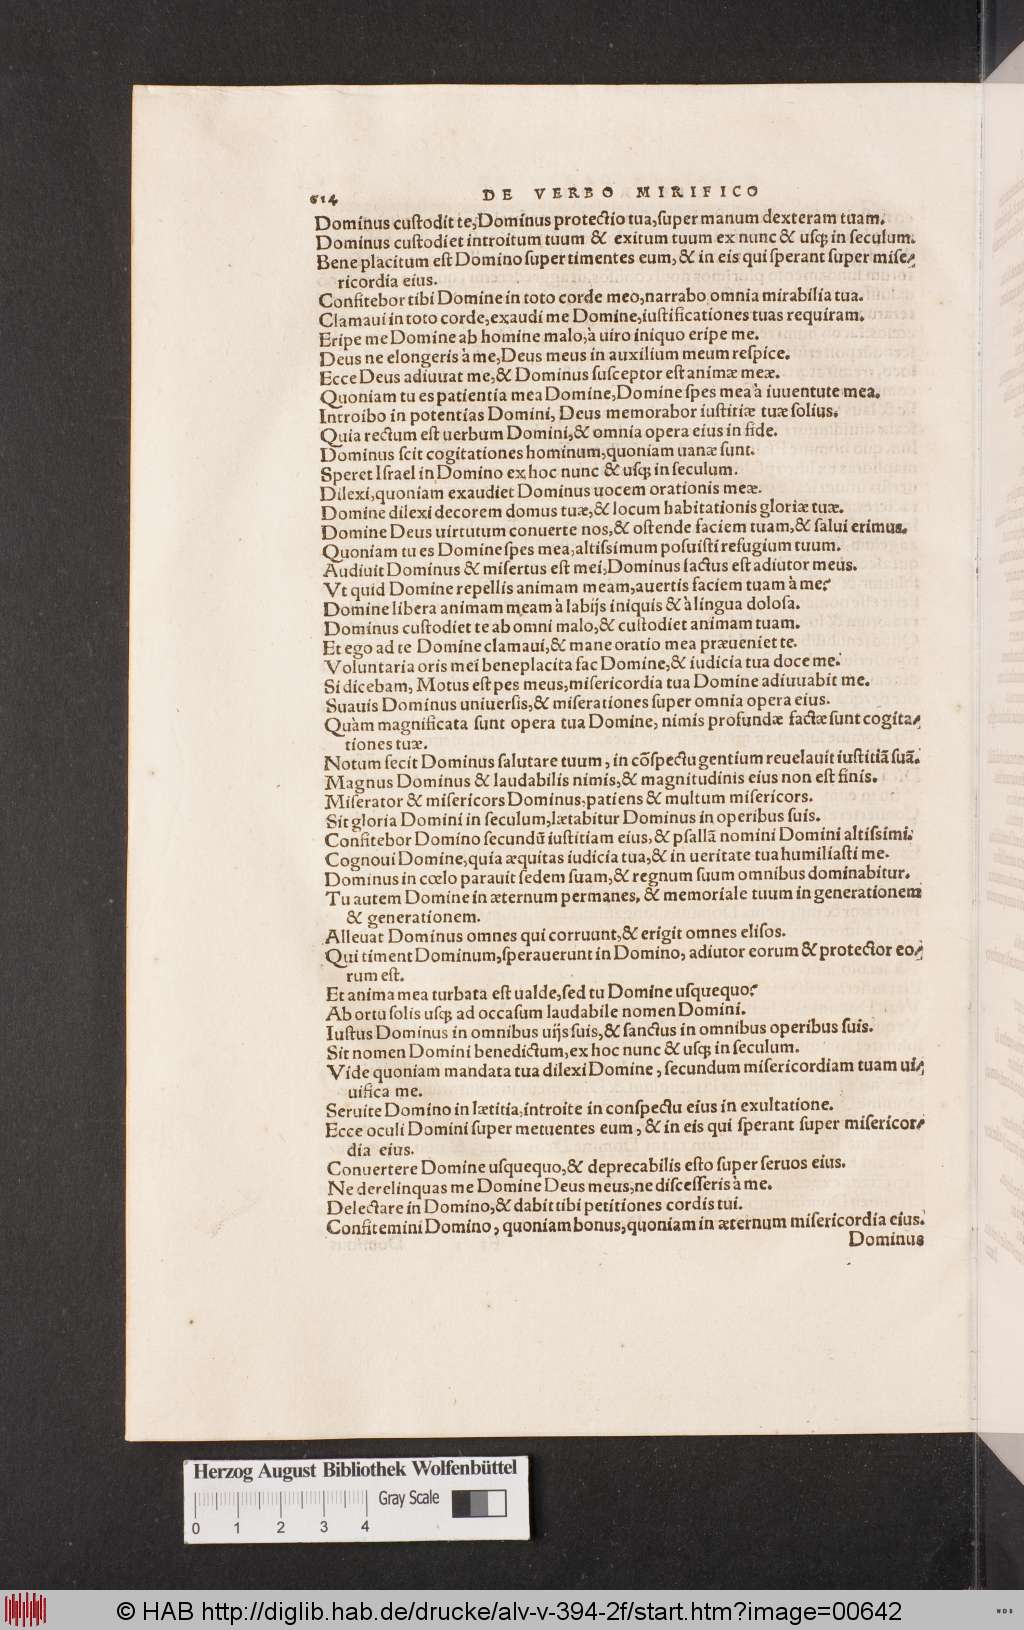 614 DE VERBO MIRIFICO
Dominus cuſtodit te, Dominus protectio tua, ſuper manum dexteram tuam.
Dominus cuſtodiet introitum tuum & exitum tuum ex nunc & uſq; in ſeculum.
Bene placitum eſt Domino ſuper timentes eum, & in eis qui ſperant ſuper miſe⸗
ricordia eius.
Confitebor tibi Domine in toto corde meo, narrabo omnia mirabilia tua.
Clamaui in toto corde, exaudi me Domine, iuſtificationes tuas requiram.
Eripe me Domine ab homine malo, à uiro iniquo eripe me.
Deus ne elongeris à me, Deus meus in auxilium meum reſpice.
Ecce Deus adiuuat me, & Dominus ſuſceptor eſt animæ meæ.
Quoniam tu es patientia mea Domine, Domine ſpes mea à iuuentute mea.
Introibo in potentias Domini, Deus memorabor iuſtitiæ tuæ ſolius.
Quia rectum eſt uerbum Domini, & omnia opera eius in fide.
Dominus ſcit cogitationes hominum, quoniam uanæ ſunt.
Speret Iſrael in Domino ex hoc nunc & uſq; in ſeculum.
Dilexi, quoniam exaudiet Dominus uocem orationis meæ.
Domine dilexi decorem domus tuæ, & locum habitationis gloriæ tuæ.
Domine Deus uirtutum conuerte nos, & oſtende faciem tuam, & ſalui erimus.
Quoniam tu es Domine ſpes mea, altiſsimum poſuiſti refugium tuum.
Audiuit Dominus & miſertus eſt mei, Dominus factus eſt adiutor meus.
Vt quid Domine repellis animam meam, auertis faciem tuam à me?
Domine libera animam meam à labijs iniquis & à lingua doloſa.
Dominus cuſtodiet te ab omni malo, & cuſtodiet animam tuam.
Et ego ad te Domine clamaui, & mane oratio mea præueniet te.
Voluntaria oris mei beneplacita fac Domine, & iudicia tua doce me.
Si dicebam, Motus eſt pes meus, miſericordia tua Domine adiuuabit me.
Suauis Dominus uniuerſis, & miſerationes ſuper omnia opera eius.
Quàm magnificata ſunt opera tua Domine, nimis profundæ factæ ſunt cogita⸗
tiones tuæ.
Notum fecit Dominus ſalutare tuum, in cõſpectu gentium reuelauit iuſtitiã ſuã.
Magnus Dominus & laudabilis nimis, & magnitudinis eius non eſt finis.
Miſerator & miſericors Dominus, patiens & multum miſericors.
Sit gloria Domini in ſeculum, lætabitur Dominus in operibus ſuis.
Confitebor Domino ſecundũ iuſtitiam eius, & pſallã nomini Domini altiſsimi.
Cognoui Domine, quia æquitas iudicia tua, & in ueritate tua humiliaſti me.
Dominus in cœlo parauit ſedem ſuam, & regnum ſuum omnibus dominabitur.
Tu autem Domine in æternum permanes, & memoriale tuum in generationem
& generationem.
Alleuat Dominus omnes qui corruunt, & erigit omnes eliſos.
Qui timent Dominum, ſperauerunt in Domino, adiutor eorum & protector eo⸗
rum eſt.
Et anima mea turbata eſt ualde, ſed tu Domine uſquequo?
Ab ortu ſolis uſq; ad occaſum laudabile nomen Domini.
Iuſtus Dominus in omnibus uijs ſuis, & ſanctus in omnibus operibus ſuis.
Sit nomen Domini benedictum, ex hoc nunc & uſq; in ſeculum.
Vide quoniam mandata tua dilexi Domine, ſecundum miſericordiam tuam ui⸗
uifica me.
Seruite Domino in lætitia, introite in conſpectu eius in exultatione.
Ecce oculi Domini ſuper metuentes eum, & in eis qui ſperant ſuper miſericor⸗
dia eius.
Conuertere Domine uſquequo, & deprecabilis eſto ſuper ſeruos eius.
Ne derelinquas me Domine Deus meus, ne diſceſſeris à me.
Delectare in Domino, & dabit tibi petitiones cordis tui.
Confitemini Domino, quoniam bonus, quoniam in æternum miſericordia eius.
Dominus
Herzog August Bibliothek Wolfenbüttel
Gray Scale
0 1 2 3 4
© HAB http://diglib.hab.de/drucke/alv-v-394-2f/start.htm?image=00642